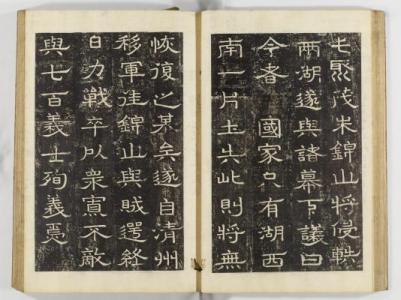 屯聚茂朱錦山將侵軼
兩湖遂與諸幕下議曰
今者 國家只有湖西
南一片土失此則將無
恢復之基矣遂自清州
移軍往錦山與賊遌終
日力戰卒以衆寡不敵
與七百義士殉義焉